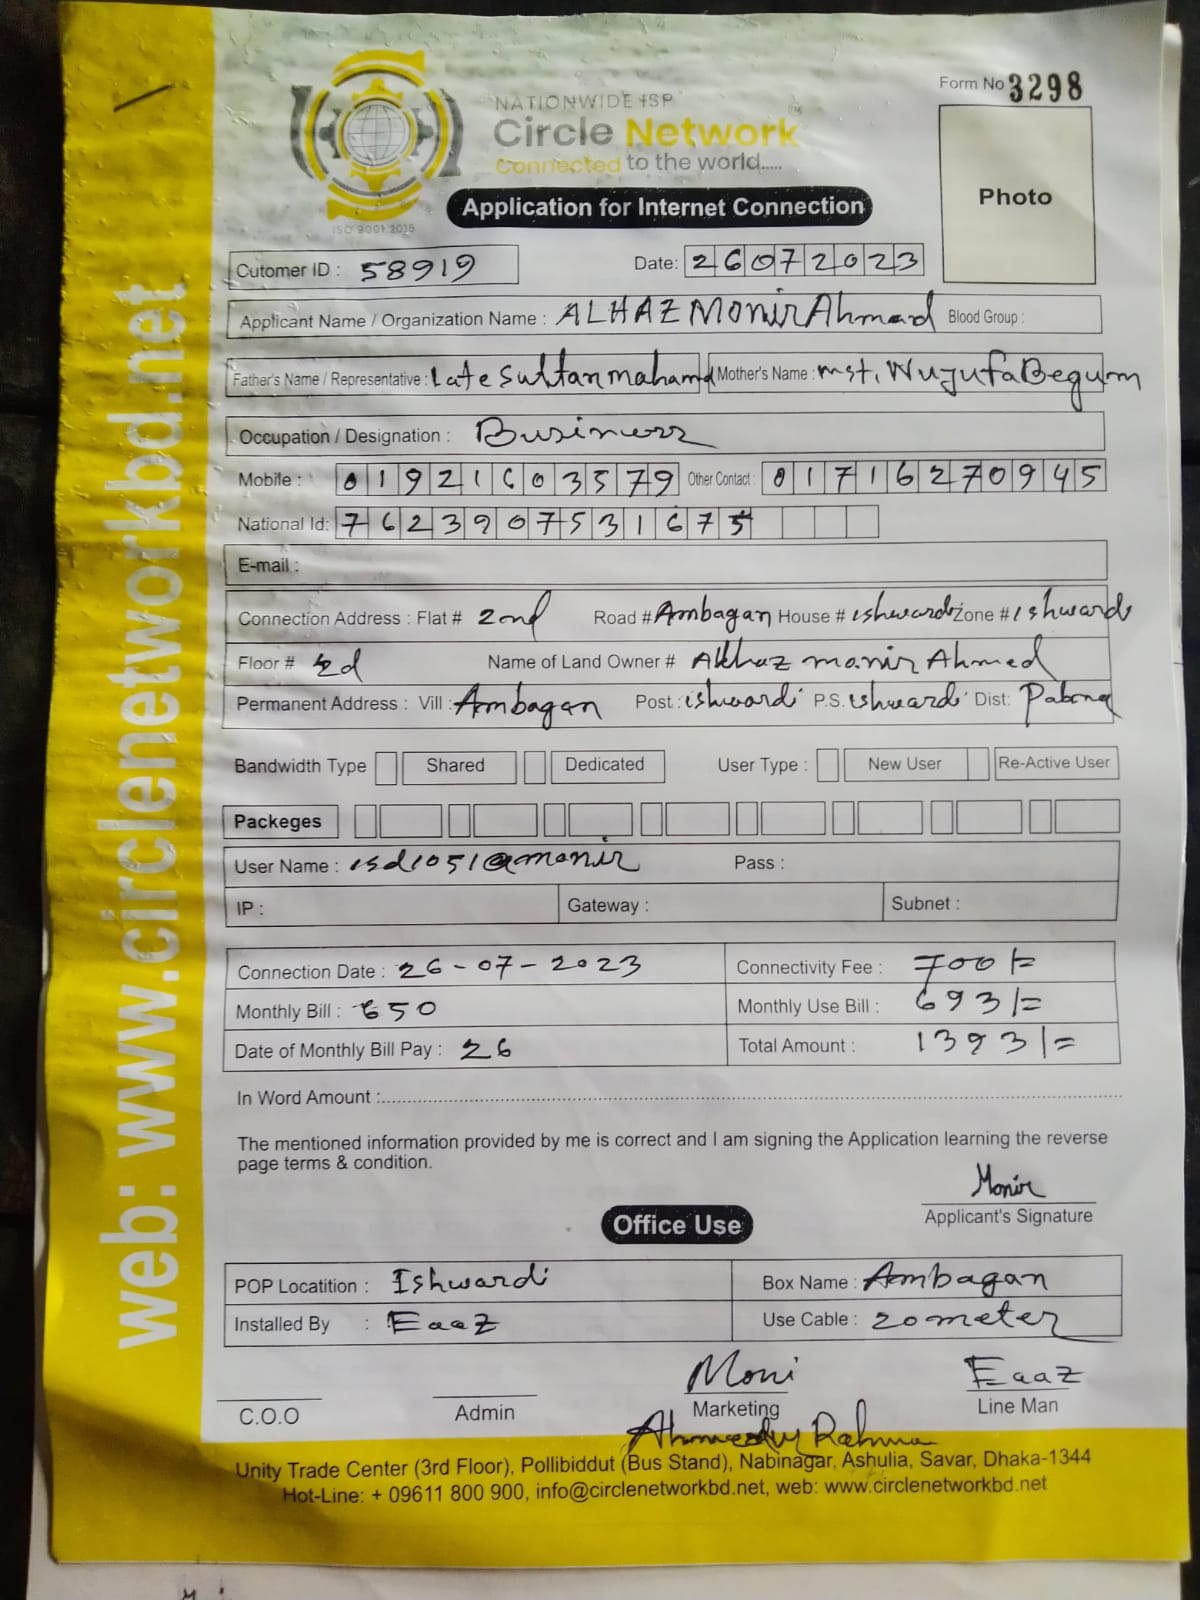 Form No 3298
NATIONWIDE ISP
Circle Network
Connected to the world.....
ISO 9001:2015
Photo
Application for Internet Connection
Cutomer ID : 58919 Date: 26072023
Applicant Name / Organization Name : ALHAZ Monir Ahmad Blood Group :
Father's Name / Representative : Late Sultan mahamd Mother's Name : mst. Nujufa Begum
Occupation / Designation : Business
Mobile : 01921603579 Other Contact : 01716270945
National Id: 7623907531675
E-mail :
Connection Address : Flat # 2nd Road # Ambagan House # ishwardi Zone # ishwardi
Floor # 2d Name of Land Owner # Alhaz monir Ahmed
Permanent Address : Vill : Ambagan Post : ishwardi P.S. ishwardi Dist: Pabna
Bandwidth Type Shared Dedicated User Type : New User Re-Active User
Packeges
User Name : isd1051@monir Pass :
IP : Gateway : Subnet :
Connection Date : 26-07-2023 Connectivity Fee : 700/=
Monthly Bill : 650 Monthly Use Bill : 693/=
Date of Monthly Bill Pay : 26 Total Amount : 1393/=
In Word Amount :
The mentioned information provided by me is correct and I am signing the Application learning the reverse
page terms & condition.
Monir
Applicant's Signature
Office Use
POP Locatition : Ishwardi Box Name : Ambagan
Installed By : Eaaz Use Cable : 20 meter
Moni Eaaz
C.O.O Admin Marketing Line Man
Unity Trade Center (3rd Floor), Pollibiddut (Bus Stand), Nabinagar, Ashulia, Savar, Dhaka-1344
Hot-Line: + 09611 800 900, info@circlenetworkbd.net, web: www.circlenetworkbd.net
web: www.circlenetworkbd.net